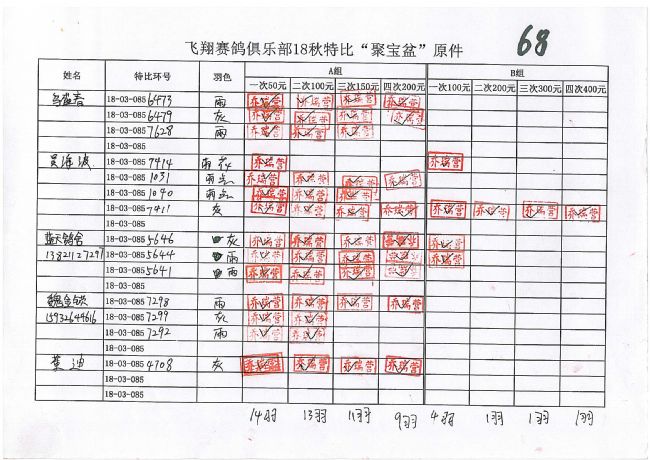 飞翔赛鸽俱乐部18秋特比“聚宝盆”原件
68
姓名 特比环号 羽色 A组 B组
一次50元 二次100元 三次150元 四次200元 一次100元 二次200元 三次300元 四次400元
18-03-0856473 雨 乔瑞营 乔瑞营 乔瑞营 乔瑞营
18-03-0856479 灰 乔瑞营 乔瑞营 乔瑞营 乔瑞营
18-03-0857628 雨 乔瑞营 乔瑞营 乔瑞营
18-03-085
18-03-0857414 雨花 乔瑞营 乔瑞营
18-03-0851031 雨 乔瑞营 乔瑞营 乔瑞营 乔瑞营
18-03-0851040 雨 乔瑞营 乔瑞营 乔瑞营
18-03-0857411 灰 乔瑞营 乔瑞营 乔瑞营 乔瑞营 乔瑞营 乔瑞营 乔瑞营 乔瑞营
18-03-085
蓝天鸽舍 18-03-0855646 灰 乔瑞营 乔瑞营 乔瑞营 乔瑞营 乔瑞营
13821127297 18-03-0855644 雨 乔瑞营 乔瑞营 乔瑞营 乔瑞营 乔瑞营
18-03-0855641 雨 乔瑞营 乔瑞营 乔瑞营 乔瑞营
18-03-085
18-03-0857298 雨 乔瑞营 乔瑞营 乔瑞营 乔瑞营
15932644616 18-03-0857299 灰 乔瑞营 乔瑞营
18-03-0857292 雨 乔瑞营 乔瑞营
18-03-085
葉迪 18-03-0854708 灰 乔瑞营 乔瑞营 乔瑞营 乔瑞营
18-03-085
18-03-085
14羽 13羽 11羽 9羽 4羽 1羽 1羽 1羽